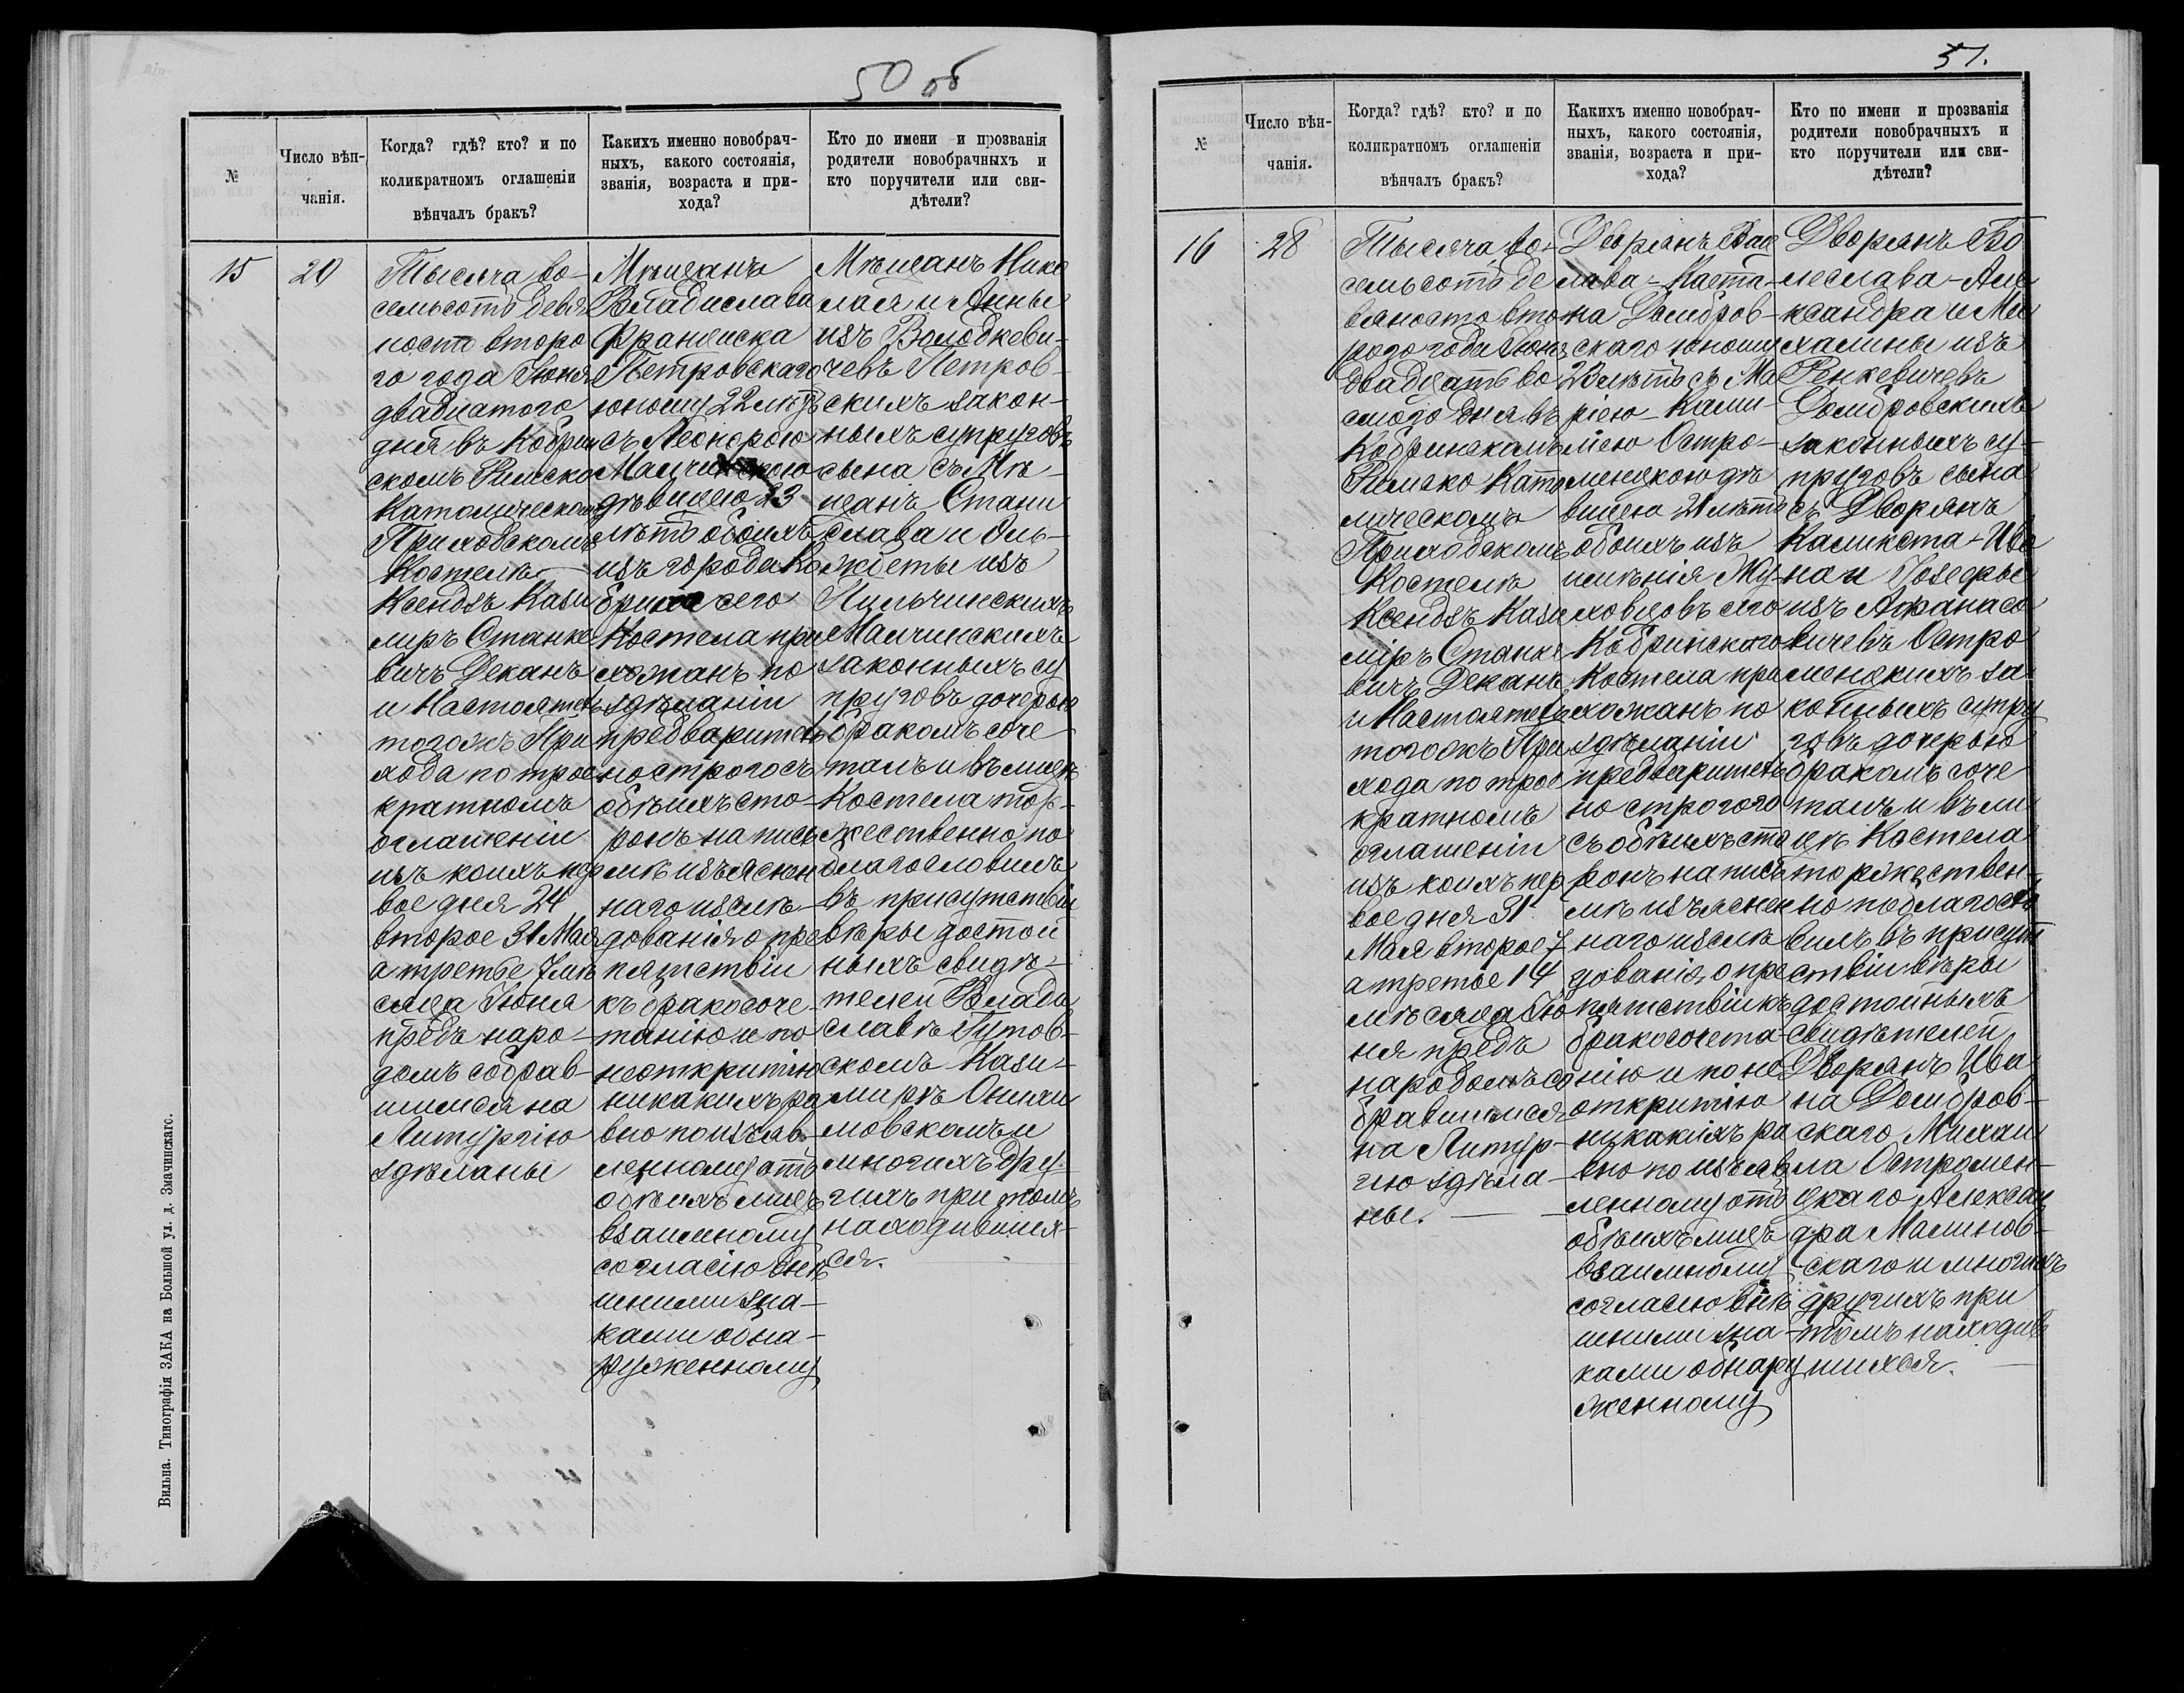 50 об
№
Число вѣн-
чанія.
Когда? гдѣ? кто? и по
коликратномъ оглашеніи
вѣнчалъ бракъ?
Какихъ именно новобрач-
ныхъ, какого состоянія,
званія, возраста и при-
хода?
Кто по имени и прозванія
родители новобрачныхъ и
кто поручители или сви-
дѣтели?
15
20
Тысяча во-
семьсотъ девя
ностo второ
го года Іюня
двадцатого
дня въ Кобрин
скомъ Римско
Католическомъ
Приходскомъ
Костелѣ
Ксендзъ Кази
миръ Станке
вичъ Деканъ
и Настоятель
тогожъ При
хода по трое
кратномъ
оглашеніи
изъ коихъ пер
вое дня 24
второе 31 Мая
а третье 7 мѣ
сяца Іюня
предъ наро-
домъ собрав-
шимся на
Литургію
здѣланы
Мѣщанъ
Владислава
Франциска
Петровскаго
юношу 22 лѣтъ
съ Леонорою
дѣвицею 23
лѣтъ обоихъ
изъ города Ко
брина сего
Костела при
хожанъ по
здѣланіи
предваритель
но строгого съ
обѣихъ сто-
ронъ на пись
мѣ изъяснен
наго изслѣ-
дованія о пре
пятствіи
къ бракосоче-
танію и по
неоткритію
никакихъ ра
вно по изъяв-
ленному отъ
обѣихъ лицъ
взаимному
согласію внѣ
шними зна-
ками обна-
руженному
Мѣщанъ Нико
лая и Анны
изъ Володкеви-
чевъ Петров-
скихъ закон-
ныхъ супруговъ
сына съ Мѣ-
щанъ Стани
слава и Эль-
жбеты изъ
Пильчинскихъ
Малчинскихъ
законныхъ су
пруговъ дочерью
бракомъ соче
талъ и въ лицѣ
Костела тор-
жественно по
благословилъ
въ присутствіи
вѣры достой
ныхъ свидѣ-
телей Влади
славѣ Гутов-
скомъ Кази-
мирѣ
мовскомъ и
многихъ дру
гихъ при томъ
находивших-
ся.
Вильна. Типографія ЗАКА на Большой ул. д. Змачинскаго.
51.
№
Число вѣн-
чанія.
Когда? гдѣ? кто? и по
коликратномъ оглашеніи
вѣнчалъ бракъ?
Какихъ именно новобрач-
ныхъ, какого состоянія,
званія, возраста и при-
хода?
Кто по имени и прозванія
родители новобрачныхъ и
кто поручители или сви-
дѣтели?
16
28
Тысяча во-
семьсотъ де
вяносто вто
рого года Іюня
двадцать во
смого дня въ
Кобринскомъ
Римско Като
лическомъ
Приходскомъ
Костелѣ
Ксендзъ Кази
міръ Станке
вичъ Деканъ
и Настоятель
тогожъ При
хода по трое
кратномъ
оглашеніи
изъ коихъ пер
вое дня 31
Мая второе 7
а третіе 14
мѣсяца Ію
ня предъ
народомъ со
бравшимся
на Литур-
гію здѣла-
ны.
Дворянъ Вац
лава-Каета-
на Домбров-
скаго юношу
23 лѣтъ съ Ма
ріею-Ками-
ліею Остро-
менцкою дѣ
вицею 21 лѣтъ
обоихъ изъ
имѣнія Му-
ховцовъ сего
Кобринского
Костела при
хожанъ по
здѣланіи
предваритель
но строгого
съ обѣихъ сто
ронъ на пись
мѣ изъяснен
наго изслѣ
дованія о пре
пятствіи къ
бракосочета-
нію и по не
открытію
никакихъ ра
вно по изъяв
ленному отъ
обѣихъ лицъ
взаимному
согласію внѣ
шними зна-
ками обнару
женному
Дворянъ Бо
леслава-Але
ксандра и Ми
халины изъ
Ренкевичевъ
Домбровскихъ
законныхъ су-
пруговъ сына
съ Дворянъ
Каликста-Ива
на и Іозефы
изъ Афанасо
вичевъ Остро
менцкихъ за-
конныхъ супру
говъ дочерью
бракомъ соче
талъ и въ ли
цѣ Костела
торжествен-
но поблагосло
вилъ въ присут
ствіи вѣры
достойныхъ
свидѣтелей
Дворянъ Ива
на Домбров-
скаго Михаи
ла Остромен-
цкаго Алексан
дра Малинов-
скаго и многихъ
другихъ при
томъ находив
шихся.